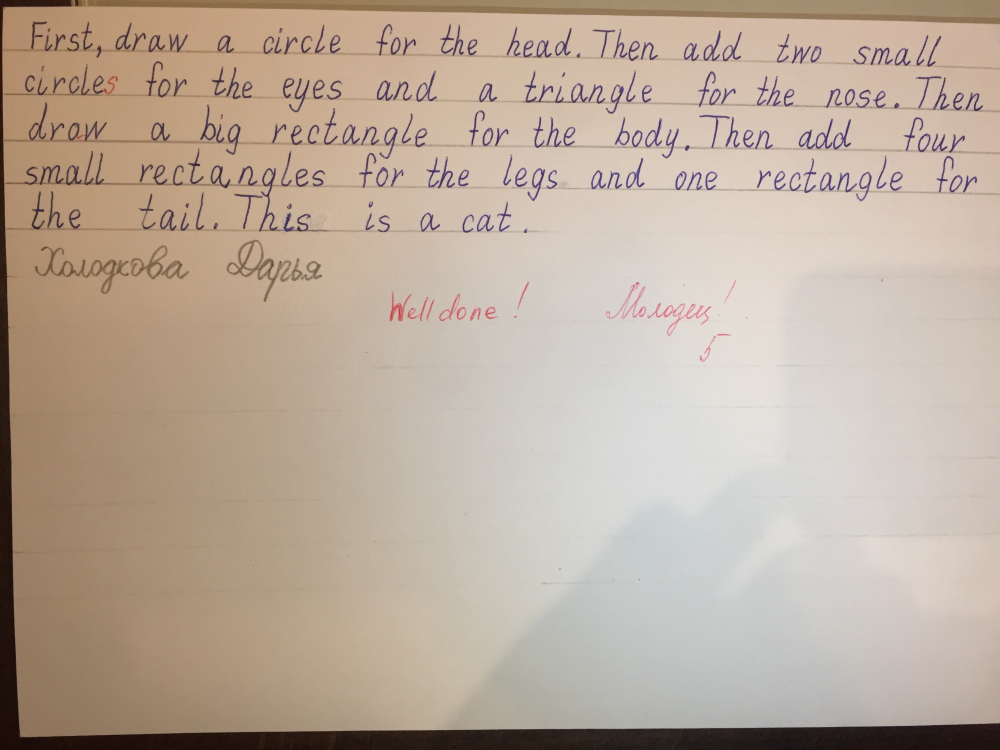 First, draw a circle for the head. Then add two small
circles for the eyes and a triangle for the nose. Then
draw a big rectangle for the body. Then add four
small rectangles for the legs and one rectangle for
the tail. This is a cat.
Холодкова Дарья
Well done! Молодец!
5